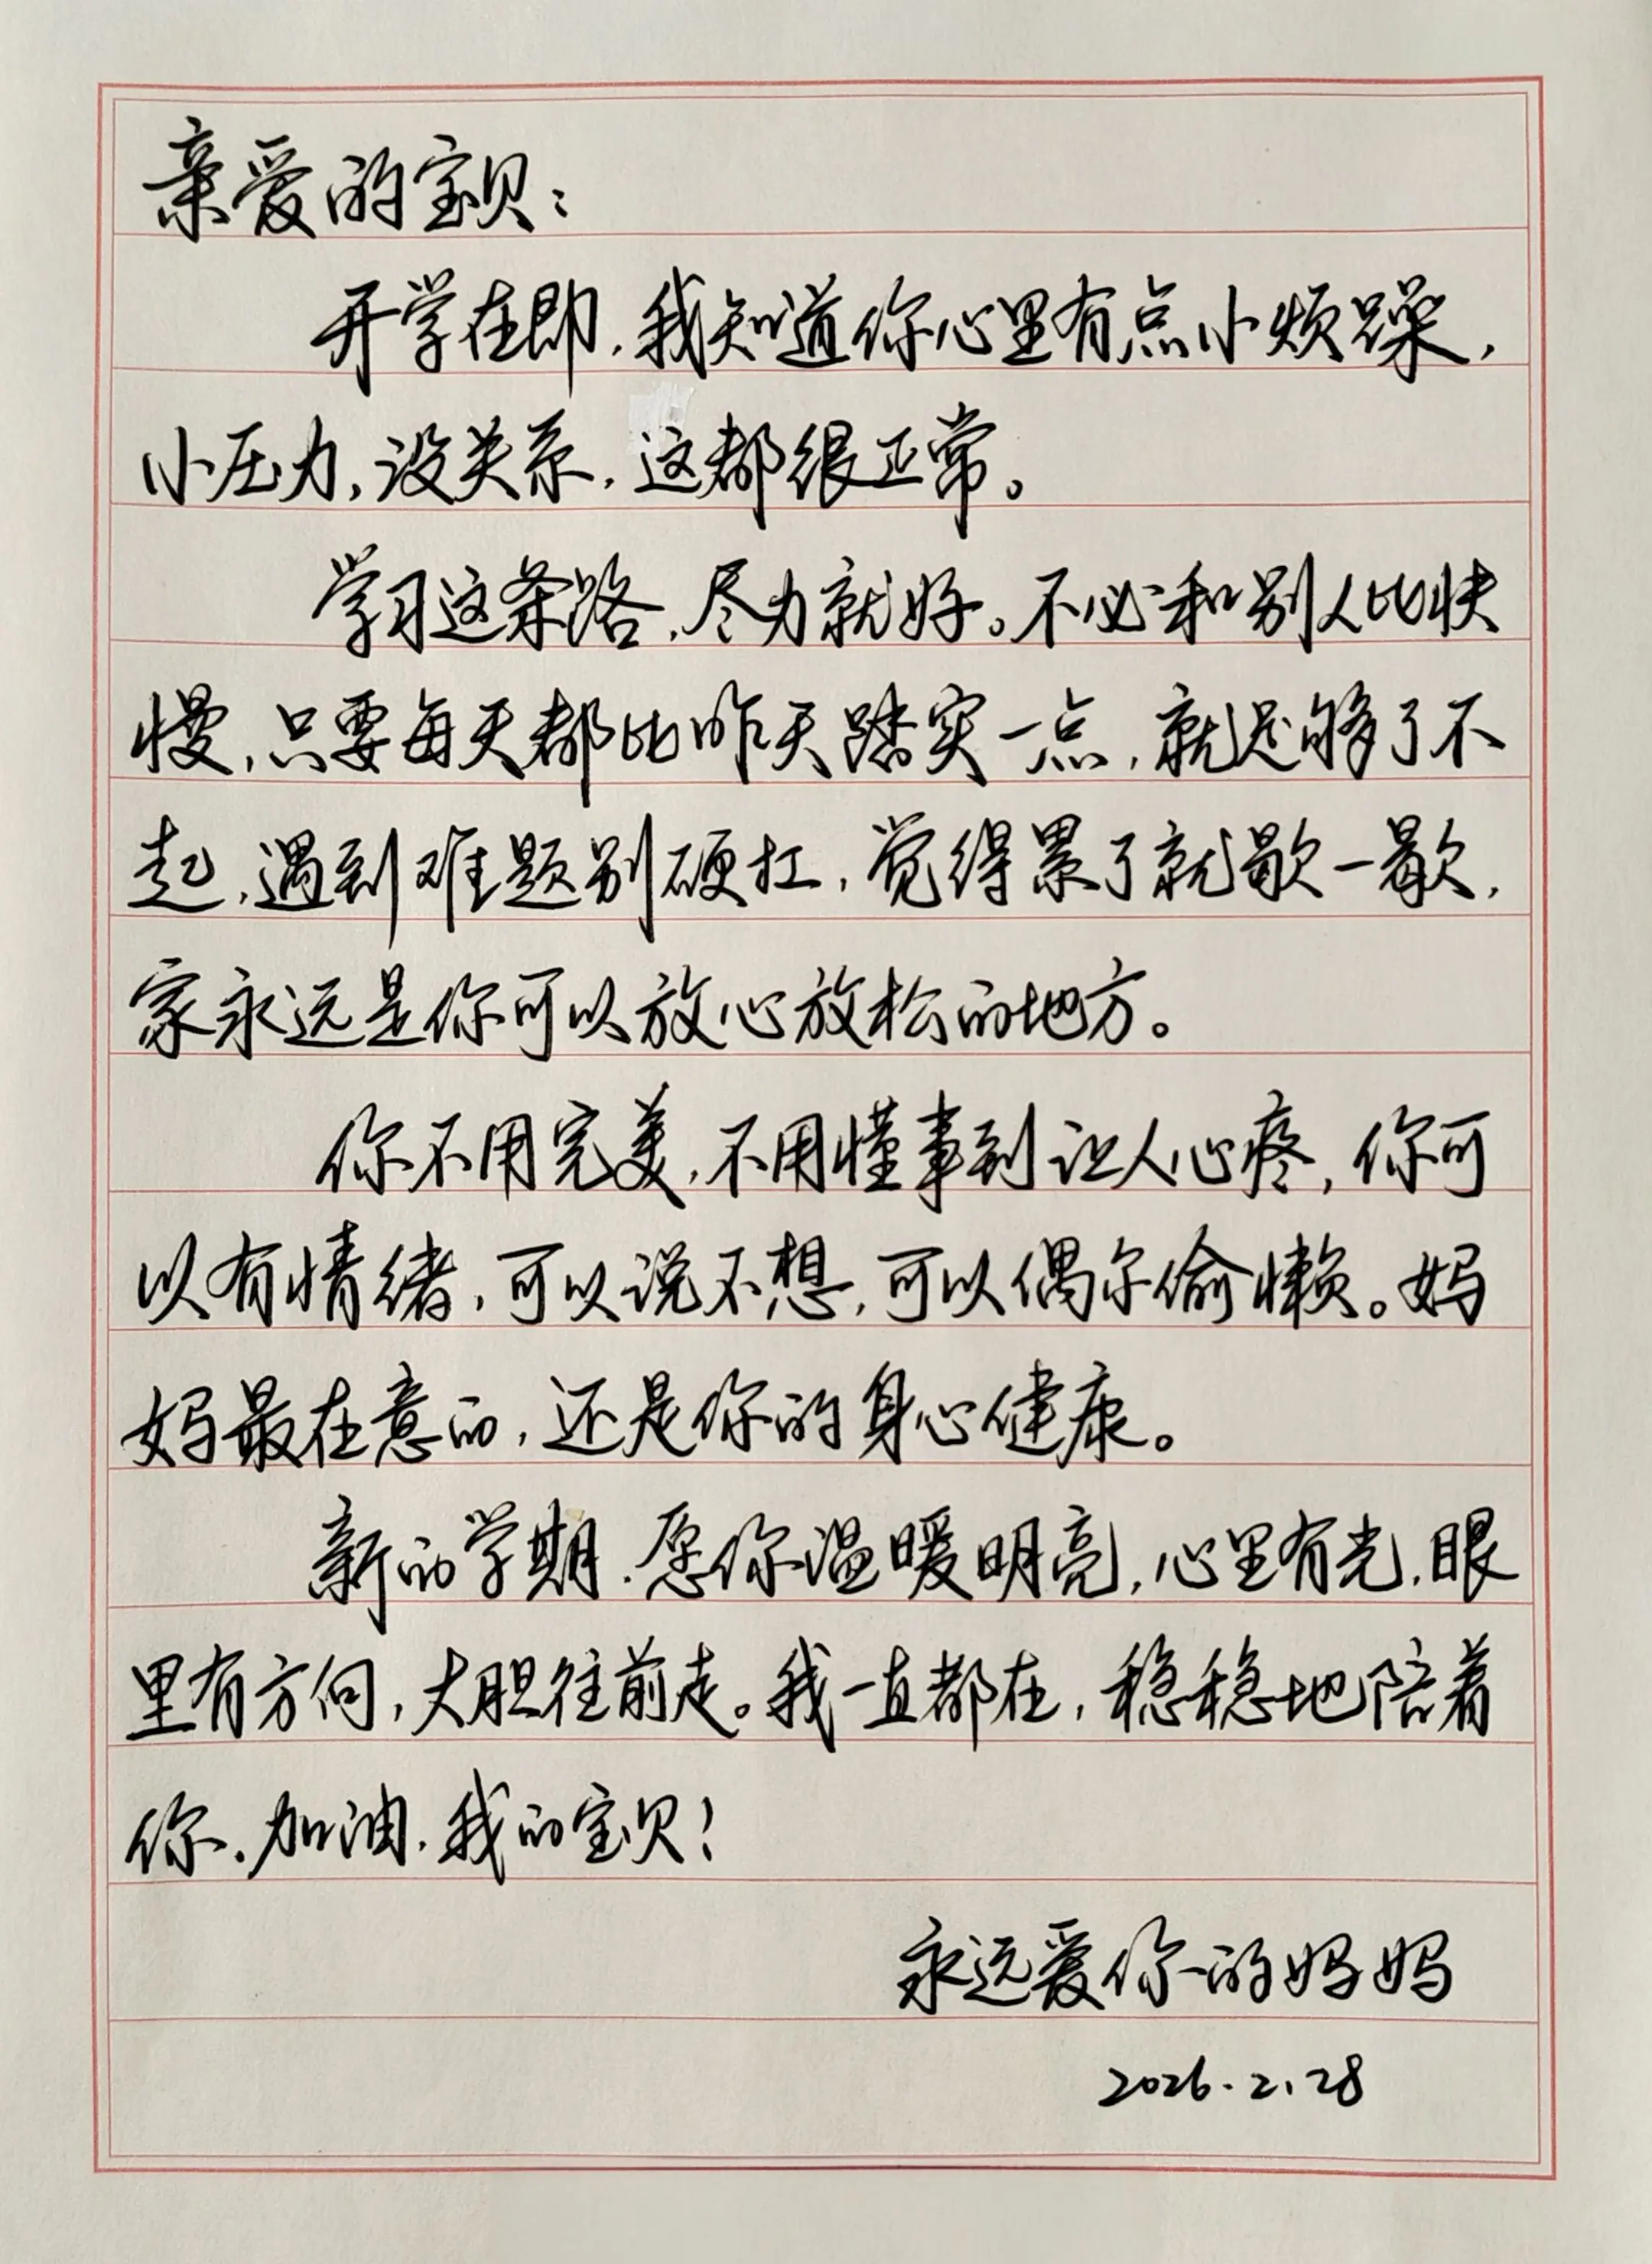 亲爱的宝贝：
开学在即，我知道你心里有点小烦躁，
小压力，没关系，这都很正常。
学习这条路，尽力就好。不必和别人比快
慢，只要每天都比昨天踏实一点，就足够了不
起，遇到难题别硬扛，觉得累了就歇一歇，
家永远是你可以放心放松的地方。
你不用完美，不用懂事到让人心疼，你可
以有情绪，可以说不想，可以偶尔偷懒。妈
妈最在意的，还是你的身心健康。
新的学期，愿你温暖明亮，心里有光，眼
里有方向，大胆往前走。我一直都在，稳稳地陪着
你，加油，我的宝贝！
永远爱你的妈妈
2026.2.28